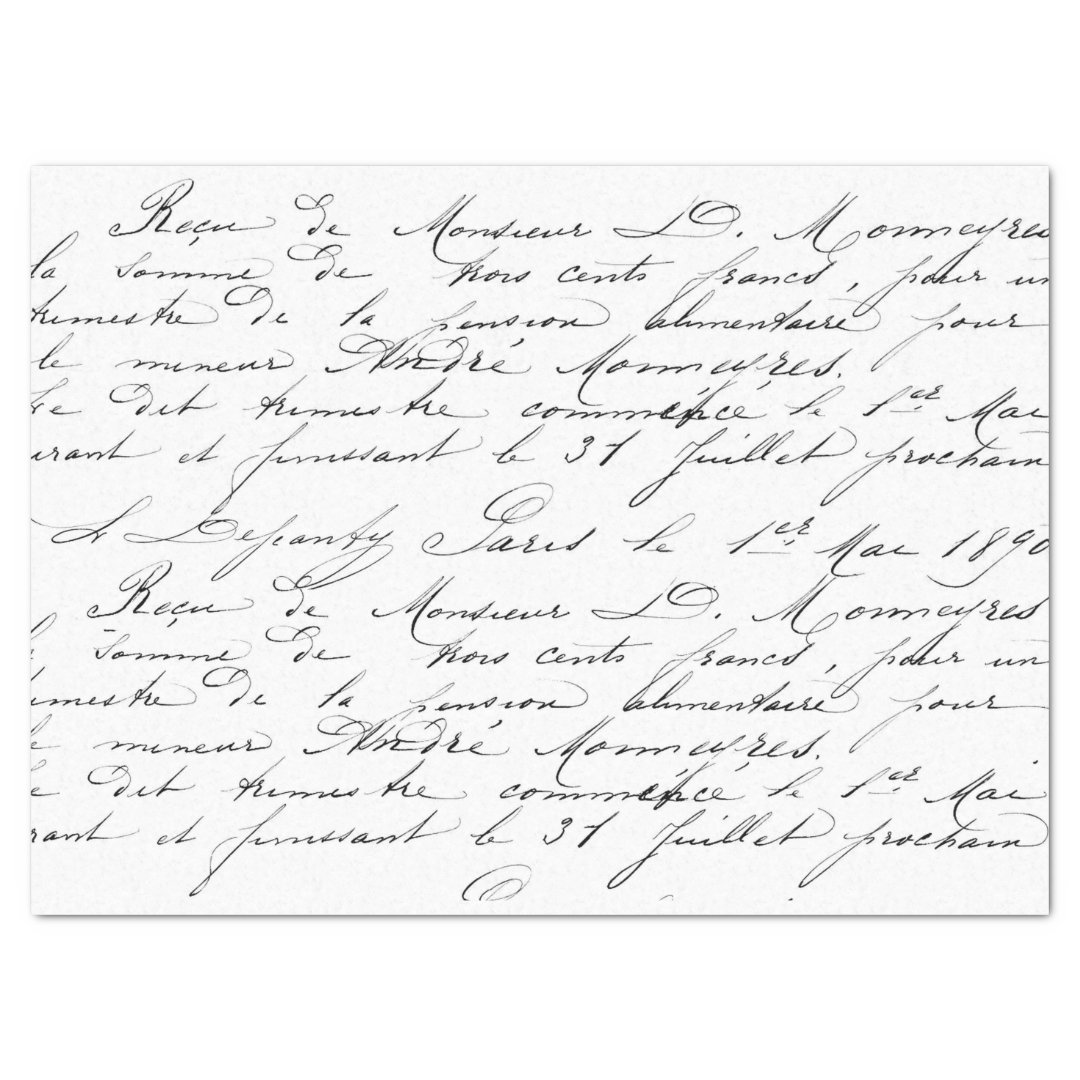 Reçu de Monsieur D. Monneyres
la somme de trois cents francs, pour un
trimestre de la pension alimentaire pour
le mineur André Monneyres.
Le dit trimestre commence le 1er Mai
urant et finissant le 31 Juillet prochain
Paris le 1er Mai 1890
Reçu de Monsieur D. Monneyres
somme de trois cents francs, pour un
imestre de la pension alimentaire pour
le mineur André Monneyres.
Le dit trimestre commence le 1er Mai
rant et finissant le 31 Juillet prochain